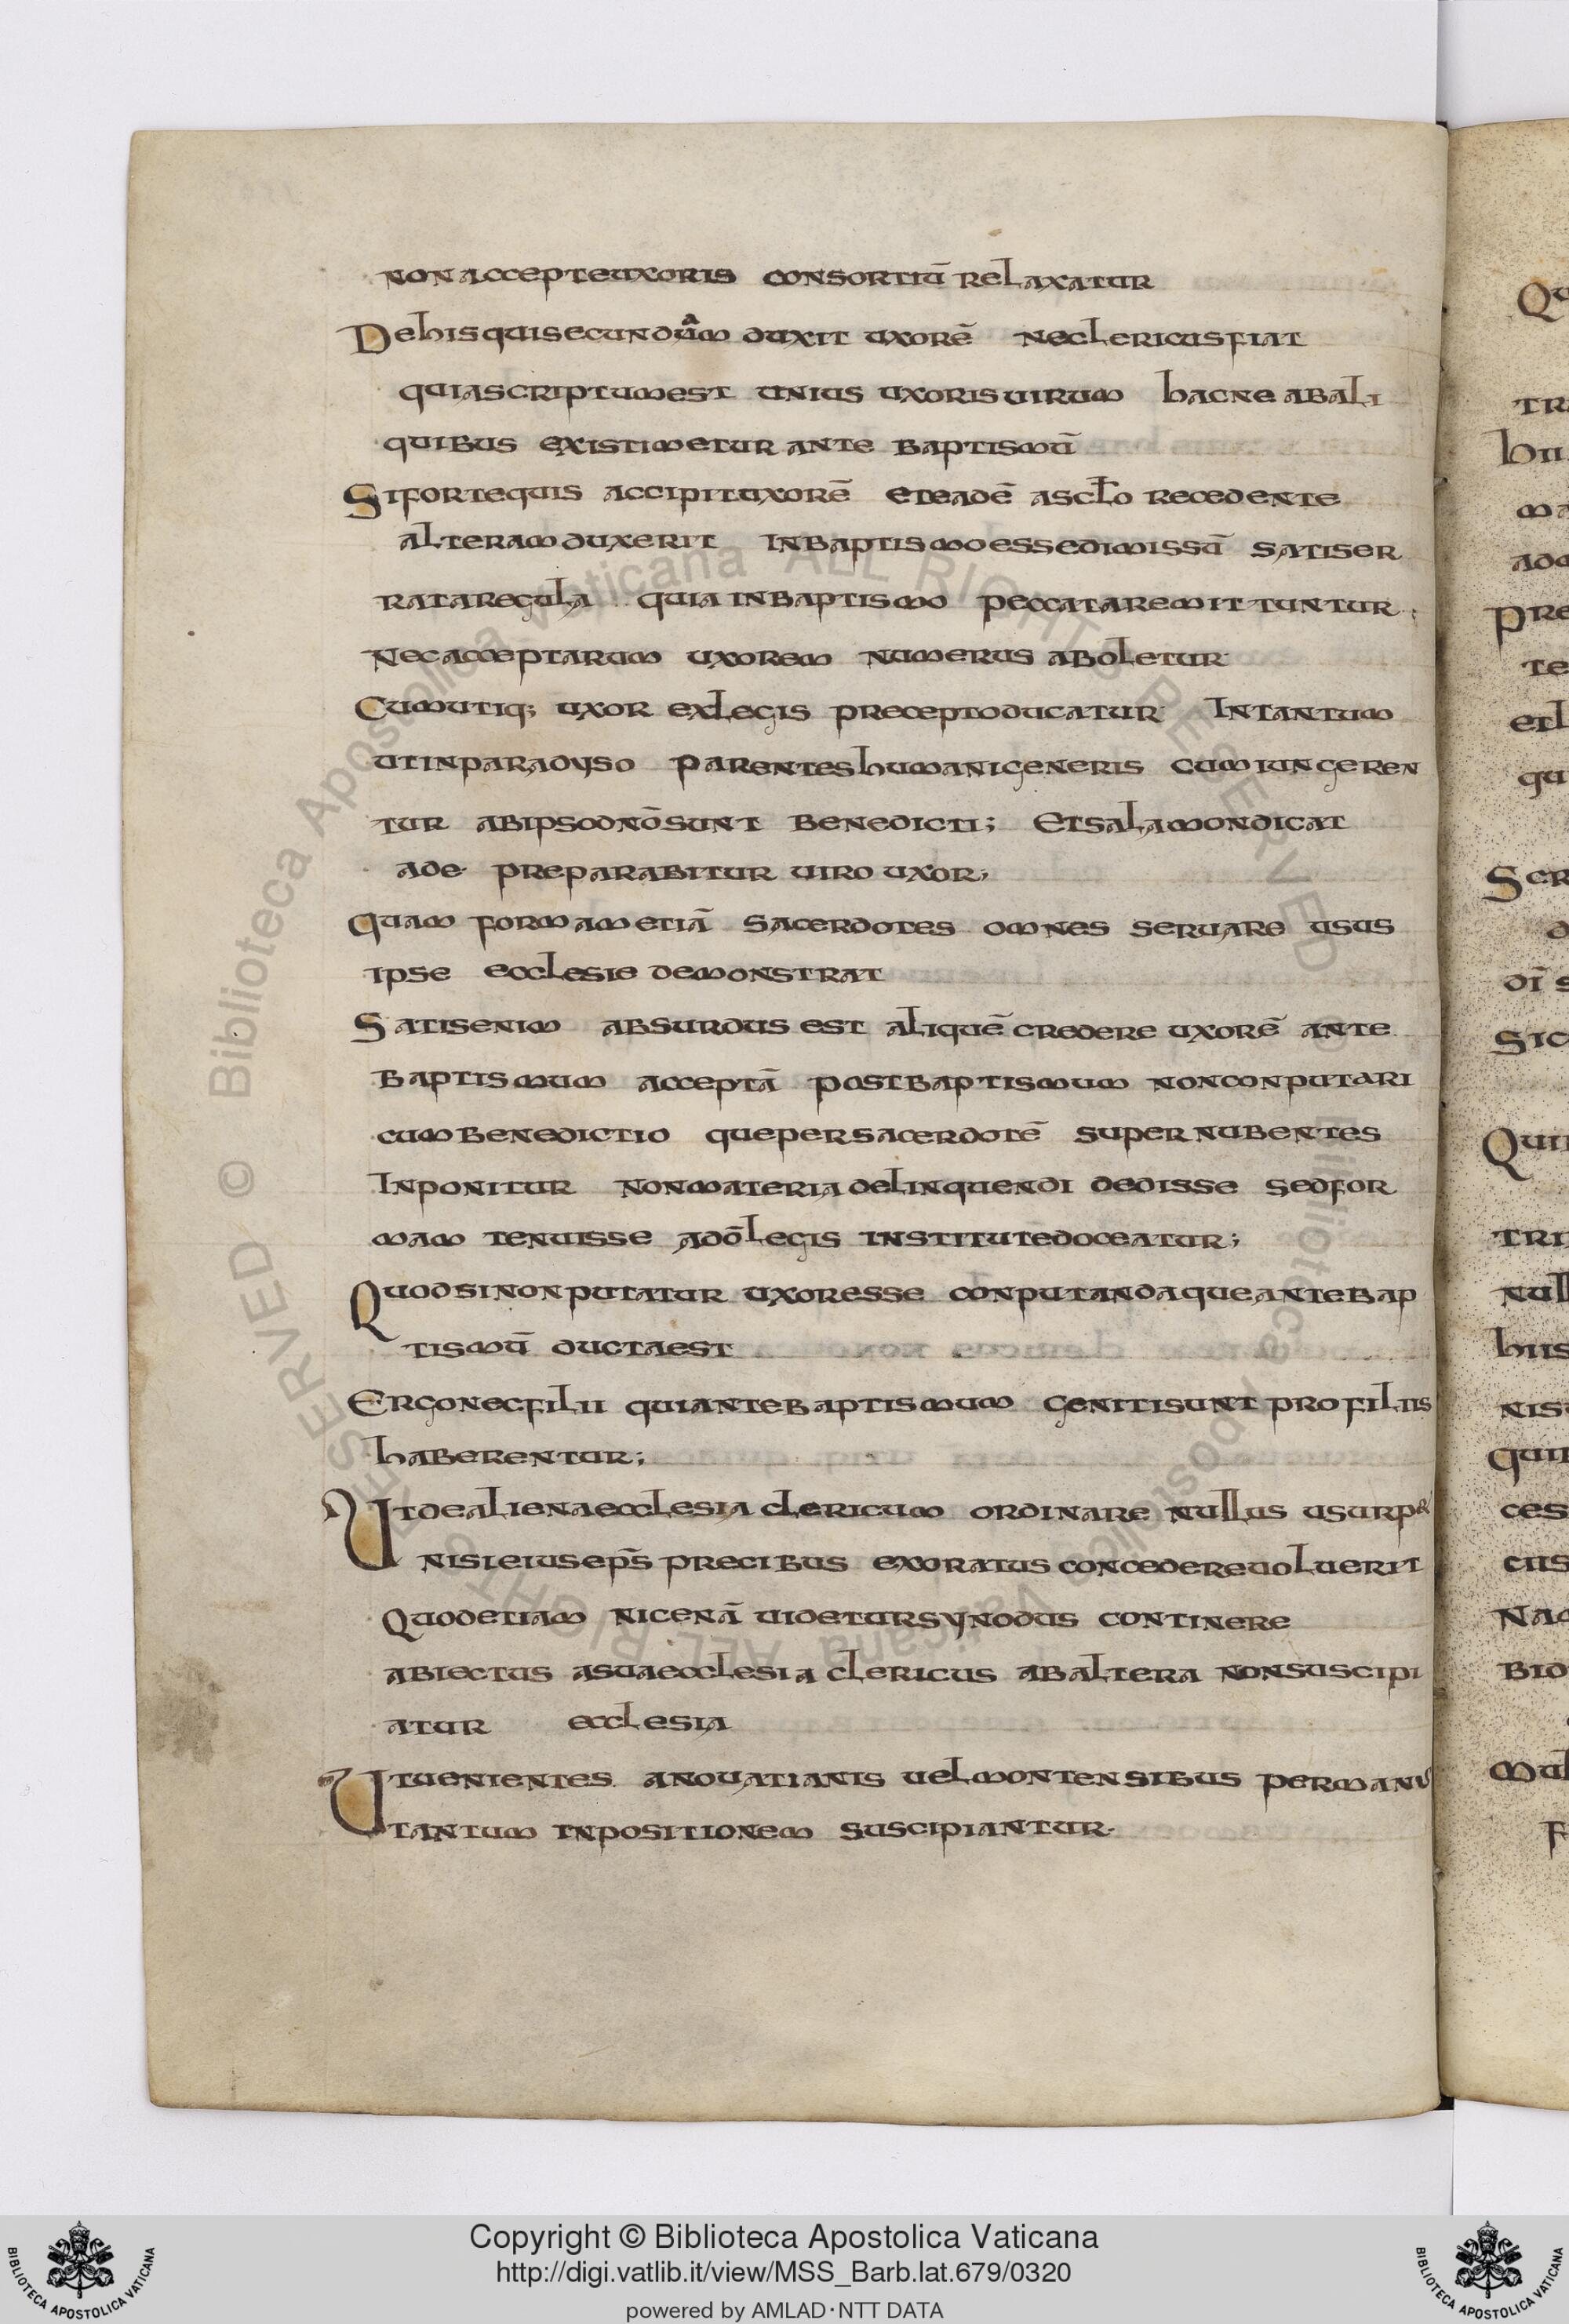 non accepte uxoris consortiū relaxatur
De his qui secundūam duxit uxorē ne clericus fiat
quia scriptum est unius uxoris uirum hac ne ab ali
quibus existimetur ante baptismū
Si forte quis accipit uxorē et eadē a sclo recedente
alteram duxerit in baptismo esse dimissū satis er
rat a regula quia in baptismo peccata remittuntur;
Nec acceptarum uxorem numerus aboletur
Cum utiq; uxor ex legis precepto ducatur Intantum
ut in paradyso parentes humani generis cum iungeren
tur ab ipso dnō sunt benedicti; Et salamon dicat
a de preparabitur uiro uxor;
quam formam etiā sacerdotes omnes seruare usus
ipse ecclesie demonstrat
Satis enim absurdus est aliquē credere uxorē ante
baptismum acceptā post baptismum non conputari
cum benedictio que per sacerdotē super nubentes
Inponitur non materia delinquendi dedisse sed for
mam tenuisse a dō legis institutē doceatur;
Quod si non putatur uxor esse conputanda que ante bap
tismū ducta est
Ergo nec filii qui ante baptismum geniti sunt pro filiis
haberentur;
Ut de aliena ecclesia clericum ordinare nullus usurp&
nisi eius eps̄ precibus exoratus concedere uoluerit
Quod etiam nicenā uidetur synodus continere
abiectus a sua ecclesia clericus ab altera non suscipi
atur ecclesia
Ut uenientes a nouatianis uel montensibus per manū
tantum inpositionem suscipiantur.
Qu
tra
hii
ma
ado
pre
te
etl
qu
Scr
d
dī s
sic
Qui
tri
null
hiis
nisi
quii
ces
ciis
Nam
bio
mul
F
Copyright © Biblioteca Apostolica Vaticana
http://digi.vatlib.it/view/MSS_Barb.lat.679/0320
powered by AMLAD·NTT DATA
BIBLIOTECA APOSTOLICA VATICANA
BIBLIOTECA APOSTOLICA VATICANA
© Biblioteca Apostolica Vaticana ALL RIGHTS RESERVED
© Biblioteca Apostolica Vaticana ALL RIGHTS RESERVED